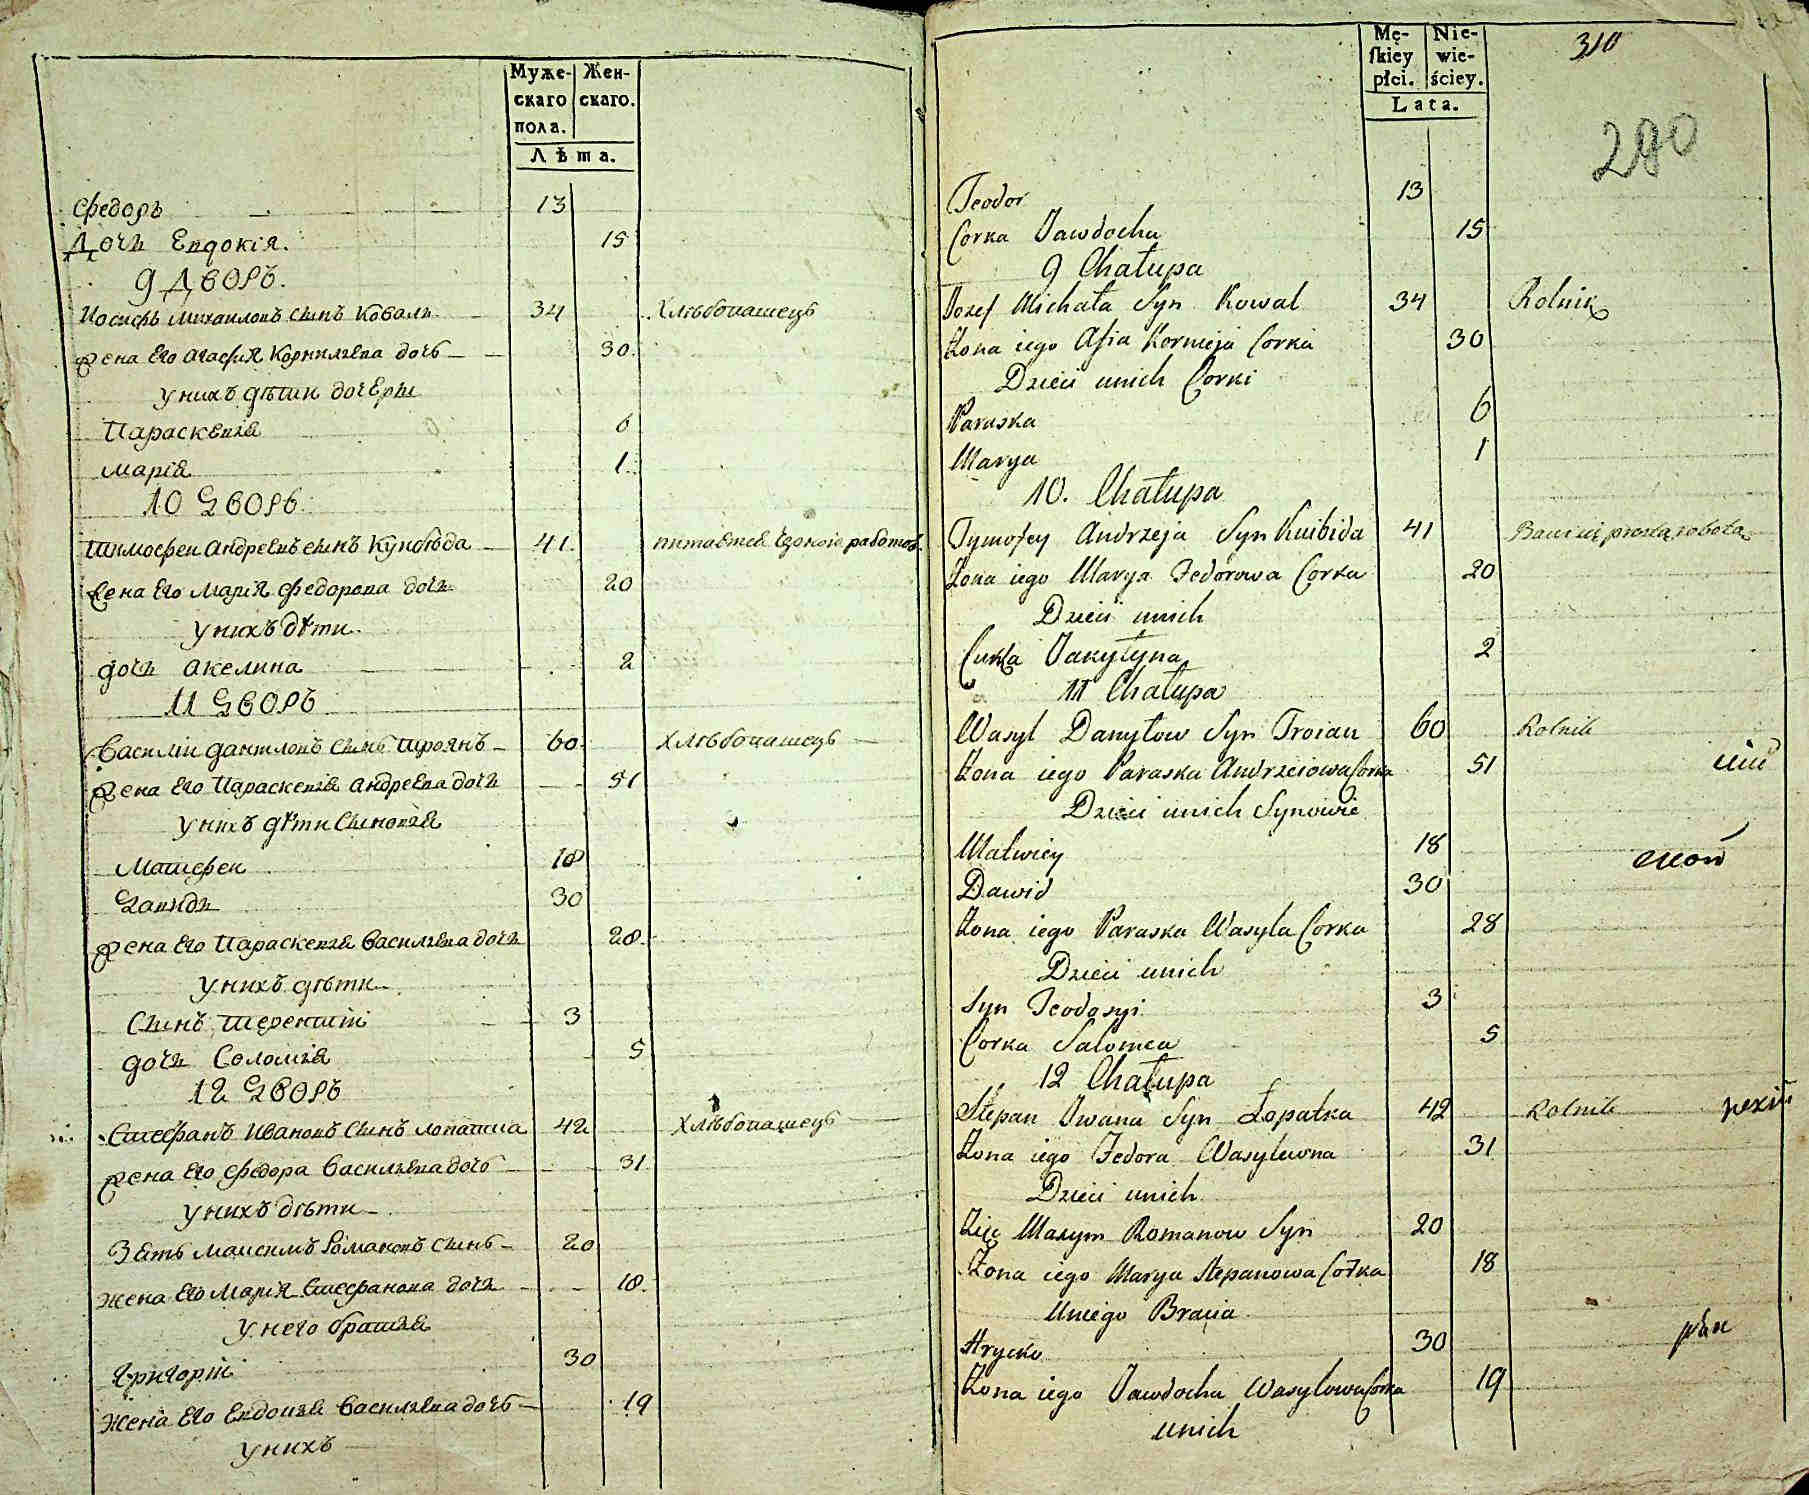 Муже-
скаго
пола.
Жен-
скаго.
Лѣта.
Федоръ 13
Дочь Евдокія. 15
9 Дворъ.
Иосифъ Михаиловъ сынъ Коваль 34 Хлѣбопашецъ
Жена Его Агафия Корнилѣева дочь 30.
У нихъ дѣти дочери
Параскевія 6
Марія 1
10 Дворъ
Тимофеи Андреевъ сынъ Куибѣда 41. питается чорною работою
Жена Его Марія Федорова дочь 20
У нихъ дѣти
дочь Акелина 2
11 Дворъ
Василіи Даниловъ сынъ Троянъ 60 Хлѣбопашецъ
Жена Его Параскевія Андреева дочь 51
У нихъ дѣти сыновья
Матфеи 18
Давидъ 30
Жена Его Параскевія Василѣева дочь 28.
У нихъ дѣти
Сынъ Терентіи 3
дочь Соломія 5
12 Дворъ
Стефанъ Ивановъ сынъ Лопатка 42 Хлѣбопашецъ
Жена Его Федора Василѣева дочь 31
У нихъ дѣти
Зять Максимъ Романовъ сынъ 20
Жена Его Марія Стефанова дочь 18.
У него братья
Григоріи 30
Жена Его Евдокія Василѣева дочь 19
У нихъ
Mę-
skiey
płci.
Nie-
wie-
ściey.
Lata.
310
280
Teodor 13
Corka Jawdocha 15
9 Chałupa
Jozef Michała Syn Kowal 34 Rolnik
Żona iego Afia Korneja Corka 30
Dzieci unich Corki
Paraska 6
Marya 1
10. Chałupa
Tymofey Andrzeja Syn Kuibida 41 Bawi się prostą robotą
Żona iego Marya Fedorowa Corka 20
Dzieci unich
Corka Jakyłyna 2
11 Chałupa
Wasyl Danyłow Syn Troian 60 Rolnik
Żona iego Paraska Andrzeiowa Corka 51
Dzieci unich Synowie
Matwiey 18
Dawid 30
Żona iego Paraska Wasyla Corka 28
Dzieci unich
Syn Teodosyi 3
Corka Salomea 5
12 Chałupa
Stepan Iwana Syn Łopatka 42 Rolnik
Żona iego Fedora Wasylewna 31
Dzieci unich
Zięc Maxym Romanow Syn 20
Żona iego Marya Stepanowa Corka 18
Uniego Bracia
Hrycko 30
Żona iego Jawdocha Wasylowa Corka 19
unich